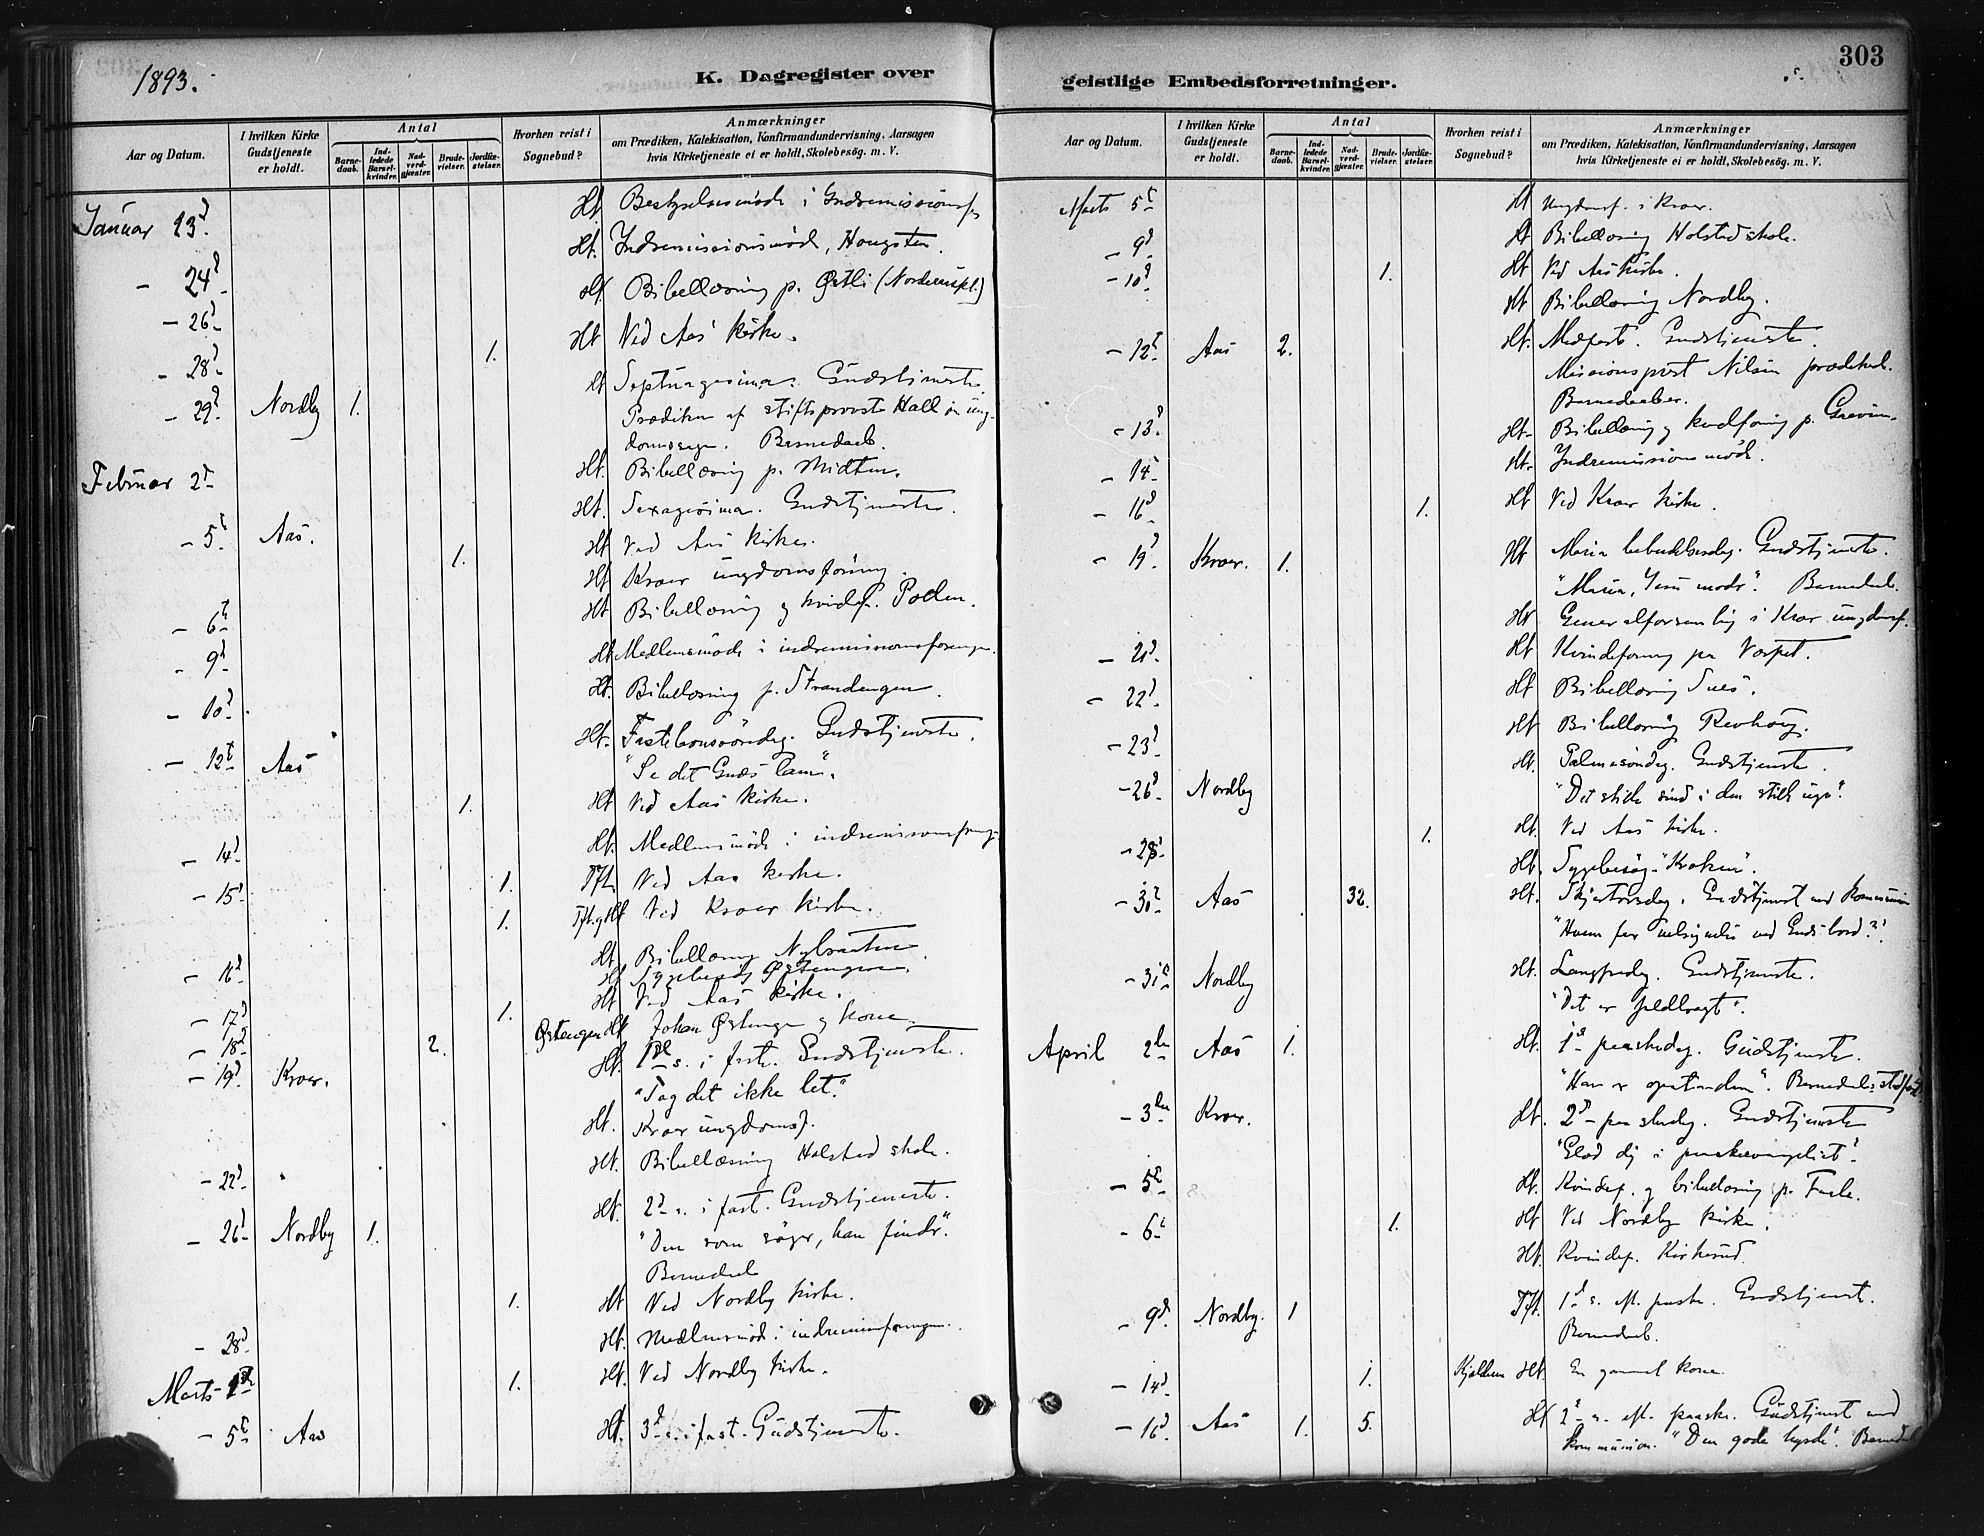 1893.
K. Dagregister over
Aar og Datum.
I hvilken Kirke Gudstjeneste er holdt.
Antal
Barnedaab.
Indledede Barselkvinder.
Nadverdgjæster.
Brudevielser.
Jordfæstelser.
Hvorhen reist i Sognebud?
Anmærkninger
om Prædiken, Katekisation, Konfirmandundervisning, Aarsagen
hvis Kirketjeneste ei er holdt, Skolebesøg. m. V.
Januar 23d Ht Bestyrelsesmöde i Indremissionsf.
Ht. Indremissionsmöde, Haugsten.
- 24d
Ht Bibellæsning p. Østli
- 26d
Ht Ved Aas kirke.
- 28d 1.
Ht Septuagesima. Gudstjeneste.
- 29d Nordby 1. Prædiken af stiftsprovst Hall
Barnedaab.
Ht. Bibellæsning p. Midten.
Februar 2d
Ht. Sexagesima. Gudstjeneste.
- 5t Aas.
1. Ht Ved Aas kirke.
Ht Kroer ungdomsforening.
Ht Bibellæsning og kvindef. Pollen.
- 6t
Ht Medlemsmöde i indremissionsforeningen.
- 9d
Ht. Bibellæsning p. Strandengen.
- 10d
Ht. Fastelavnssöndag. Gudstjeneste.
- 12t Aas "Se det Guds lam".
1. Ht Ved Aas kirke.
Ht. Medlemsmöde i indremissionsforening
- 14d
1. Tft. Ved Aas kirke.
- 15d
1. Tft. og Ht Ved Kroer kirke.
Ht Bibellæsning Nybraaten.
- 16d Ht Sygebesög Østengen.
1. Ht Ved Aas kirke.
- 17d
- 18d 2. Østengen Ht Johan Østengen og kone.
- 19d Kroer. Ht. 1ste s. i faste. Gudstjeneste.
"Tag det ikke let."
Ht. Kroer ungdomsf.
Ht. Bibellæsning Holstad skole.
- 22d
Ht. 2d s. i fast. Gudstjeneste.
- 26d Nordby 1. "Den som söger, han finder."
Barnedaab
1. Ht Ved Nordby kirke.
Ht. Medlemsmöde i
- 28d
1. Ht. Ved Nordby kirke.
Marts 1ste
- 5t Aas Ht. 3d s. i fast. Gudstjeneste.
303
geistlige Embedsforretninger.
Aar og Datum.
I hvilken Kirke Gudstjeneste er holdt.
Antal
Barnedaab.
Indledede Barselkvinder.
Nadverdgjæster.
Brudevielser.
Jordfæstelser.
Hvorhen reist i Sognebud?
Anmærkninger
om Prædiken, Katekisation, Konfirmandundervisning, Aarsagen
hvis Kirketjeneste ei er holdt, Skolebesøg. m. V.
Marts 5t Ht Ungdomsf. i Kroer.
- 9d Ht Bibellæsning Holstad skole.
- 10d 1. Ht Ved Aas kirke.
Ht Bibellæsning Nordby.
- 12t Aas 2. Ht. Midfaste. Gudstjeneste.
Missionsprest Nilsen prædiked.
Barnedaaber.
- 13d Ht- Bibellæsning og kvdforning p.
- 14 Ht. Indremissionsmöde.
- 16d 1. Ht Ved Kroer kirke.
- 19d Kroer. 1. Ht Maria bebudelsesdag. Gudstjeneste.
"Maria, Jesu moder". Barnedaab.
Ht Generalforsamling i Kroer ungdomsf.
- 21d Ht Kvindeforning paa
- 22d Ht Bibellæsning
- 23d Ht Bibellæsning Revhaug.
- 26d Nordby Ht. Palmesöndag. Gudstjeneste.
"Det stille sind i den stille uge".
- 28 1. Ht. Ved Aas kirke.
Ht. Sygebesög "Kroken".
- 30t Aas 32. Ht. Skjærtorsdag. Gudstjenest med kommunion
"Hvem faar velsignelse ved Guds bord?".
- 31te Nordby Ht. Langfredag. Gudstjeneste.
"Det er fuldbragt".
April 2den Aas 1. Ht. 1s paaskedag. Gudstjeneste.
"Han er opstanden".
- 3die Kroer. Ht. 2d paaskedag. Gudstjeneste
"Glæd dig i paaskeevangeliet".
- 5te Ht. Kvindef. og bibellæsning p.
- 6t 1. Ht Ved Nordby kirke.
Ht. Kvindef. Kirkerud.
- 9d Nordby. 1 Tft. 1s s. eft. paaske. Gudstjeneste.
Barnedaab.
- 14d 1. Ht. En gammel kone.
- 16d Aas 1. 5. Ht 2d s. eft. paaske. Gudstjenest med
kommunion. "Den gode hyrde".